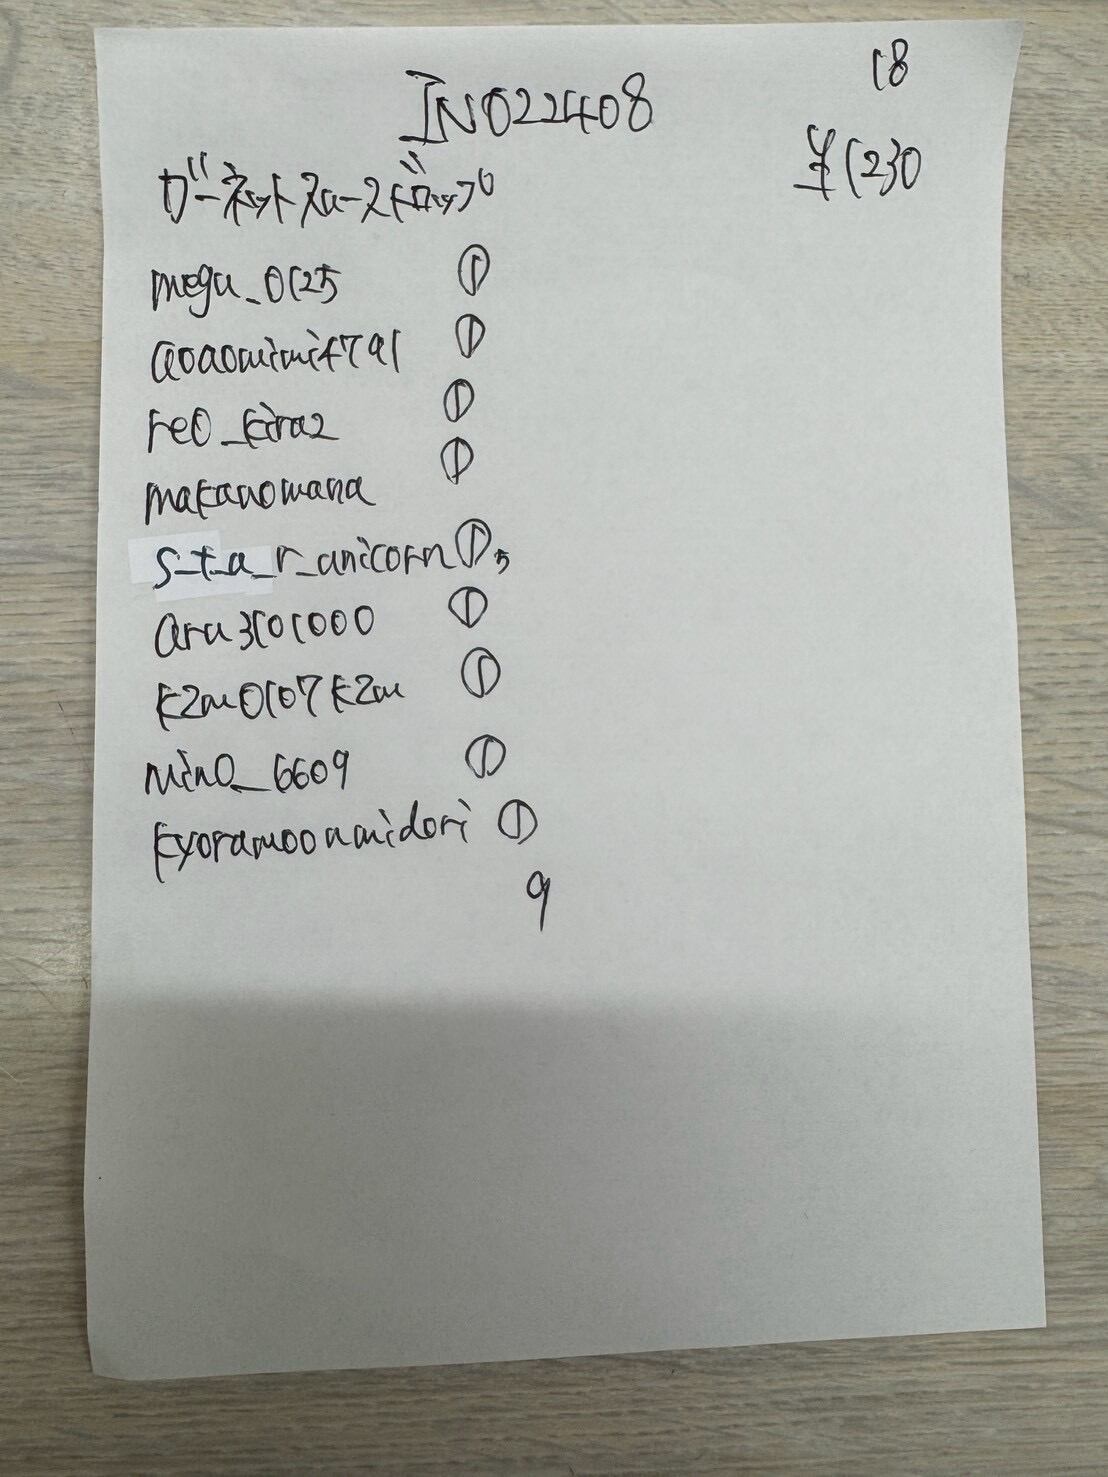 INO22408
18
¥1230
ガーネットスムースドロップ
megu_0125
aoaomimi4791
re0_kira2
makanomana
s_t_a_r_unicorn ① 5
aru3101000 ①
kzm0107kzm ①
nin0_6609 ①
kyoramoonmidori ①
9